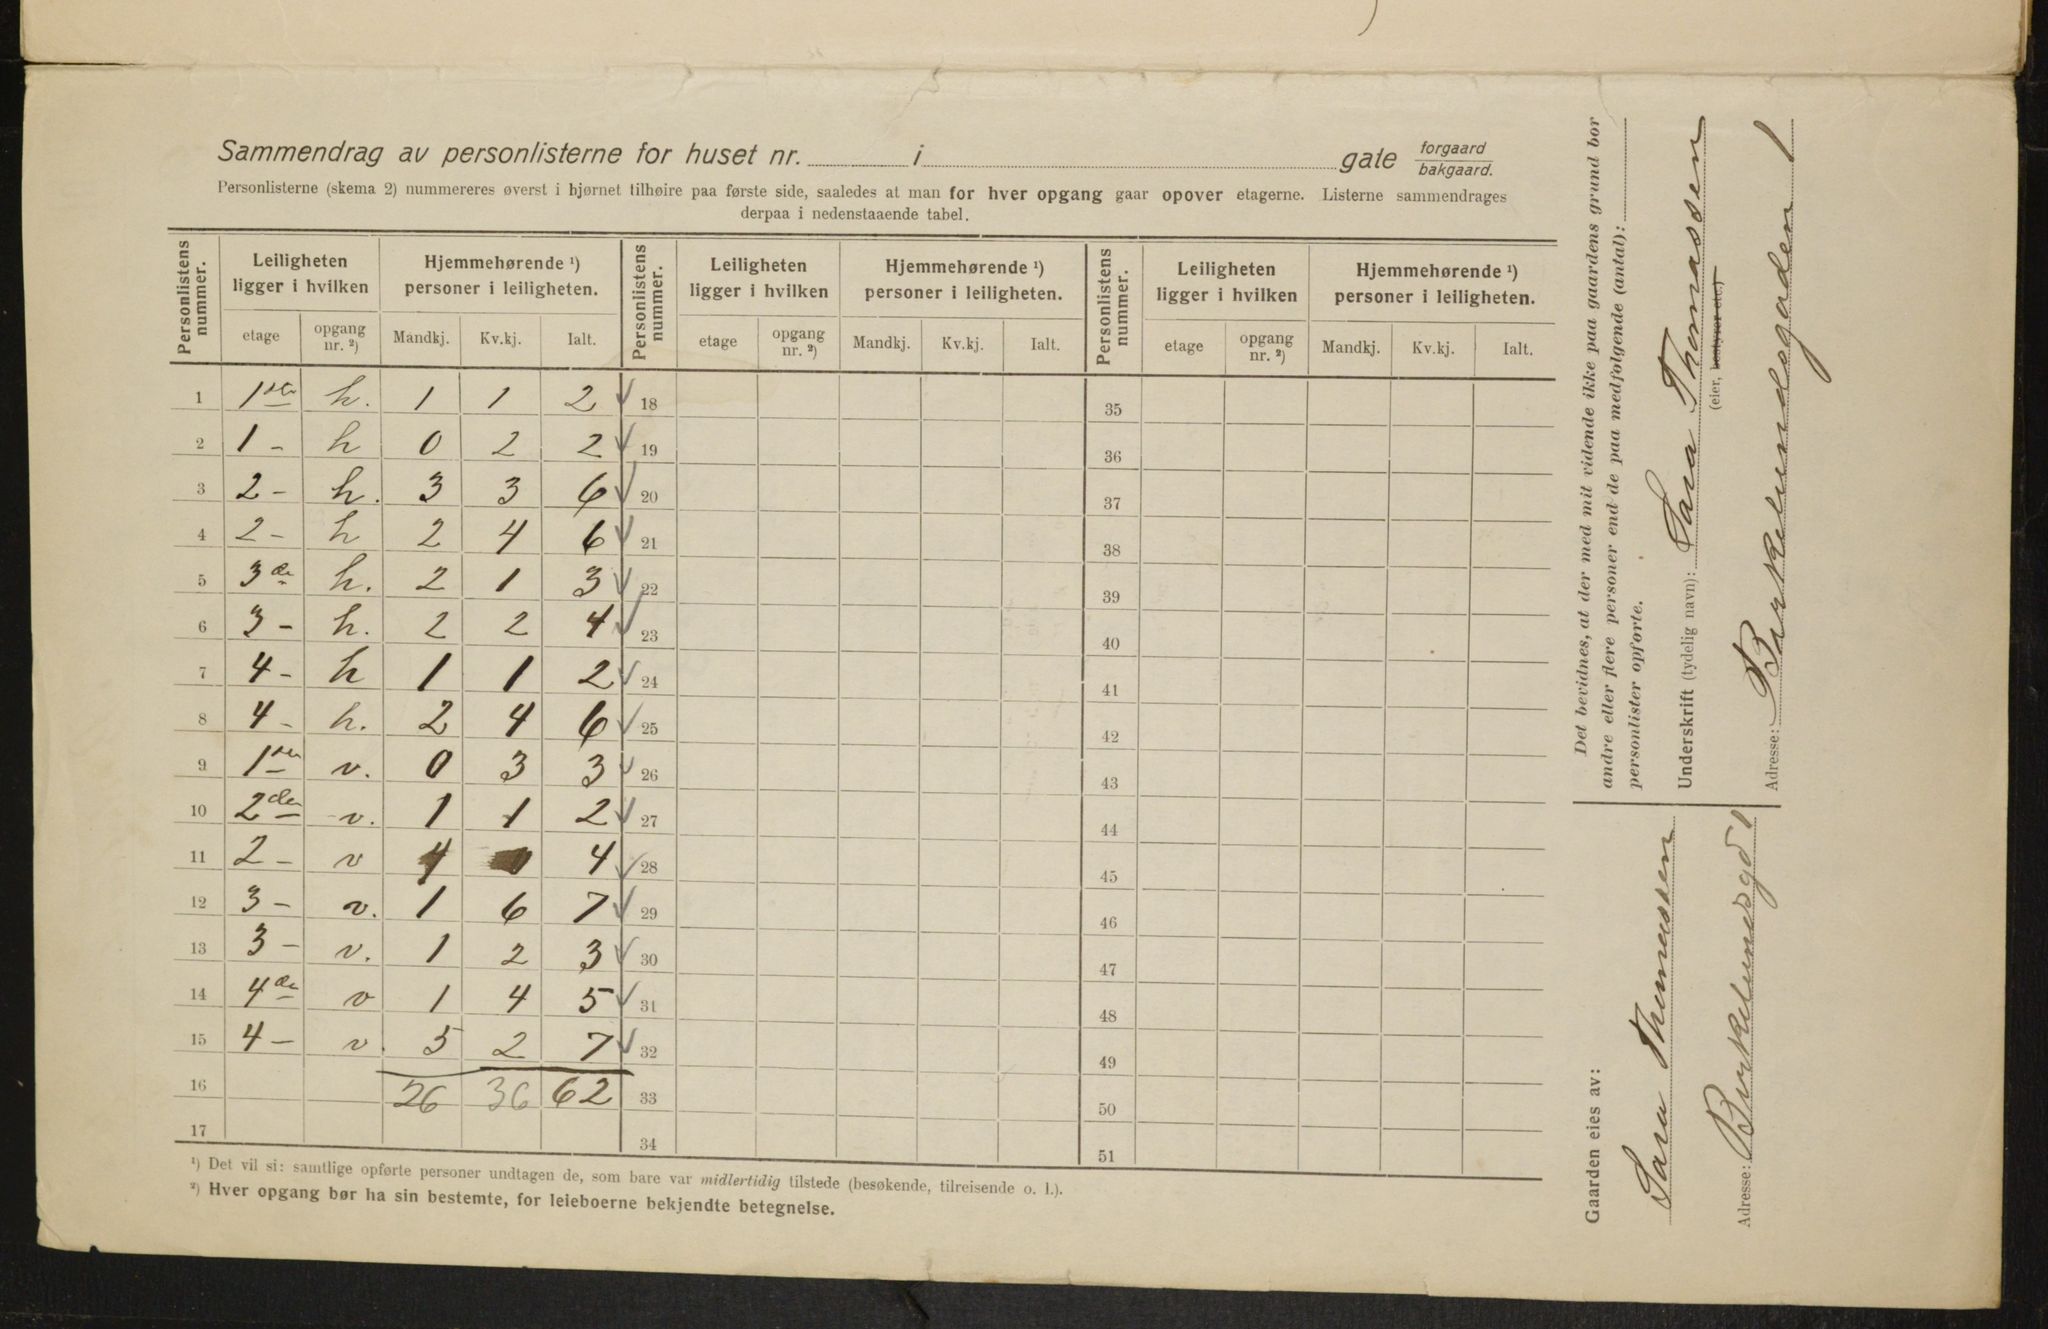 Sammendrag av personlisterne for huset nr. i gate forgaard bakgaard.
Personlisterne (skema 2) nummereres øverst i hjørnet tilhøire paa første side, saaledes at man for hver opgang gaar opover etagerne. Listerne sammendrages
derpaa i nedenstaaende tabel.
Personlistens nummer. Leiligheten ligger i hvilken Hjemmehørende ¹) personer i leiligheten. Personlistens nummer. Leiligheten ligger i hvilken Hjemmehørende ¹) personer i leiligheten. Personlistens nummer. Leiligheten ligger i hvilken Hjemmehørende ¹) personer i leiligheten.
etage opgang nr. ²) Mandkj. Kv.kj. Ialt. etage opgang nr. ²) Mandkj. Kv.kj. Ialt. etage opgang nr. ²) Mandkj. Kv.kj. Ialt.
1 1ste h. 1 1 2 18 35
2 1 - h 0 2 2 19 36
3 2 - h. 3 3 6 20 37
4 2 - h 2 4 6 21 38
5 3de h. 2 1 3 22 39
6 3 - h. 2 2 4 23 40
7 4 - h 1 1 2 24 41
8 4 - h. 2 4 6 25 42
9 1ste v. 0 3 3 26 43
10 2den v. 1 1 2 27 44
11 2 - v 4 0 4 28 45
12 3 - v. 1 6 7 29 46
13 3 - v. 1 2 3 30 47
14 4de v 1 4 5 31 48
15 4 - v. 5 2 7 32 49
16 26 36 62 33 50
17 34 51
¹) Det vil si: samtlige opførte personer undtagen de, som bare var midlertidig tilstede (besøkende, tilreisende o. l.).
²) Hver opgang bør ha sin bestemte, for leieboerne bekjendte betegnelse.
Det bevidnes, at der med mit vidende ikke paa gaardens grund bor
andre eller flere personer end de paa medfølgende (antal):
personlister opførte.
Underskrift (tydelig navn): Sara Thomassen
(eier, bestyrer etc.)
Adresse: Birkelundsgaden 1
Gaarden eies av:
Sara Thomassen
Adresse: Birkelundsgd 1